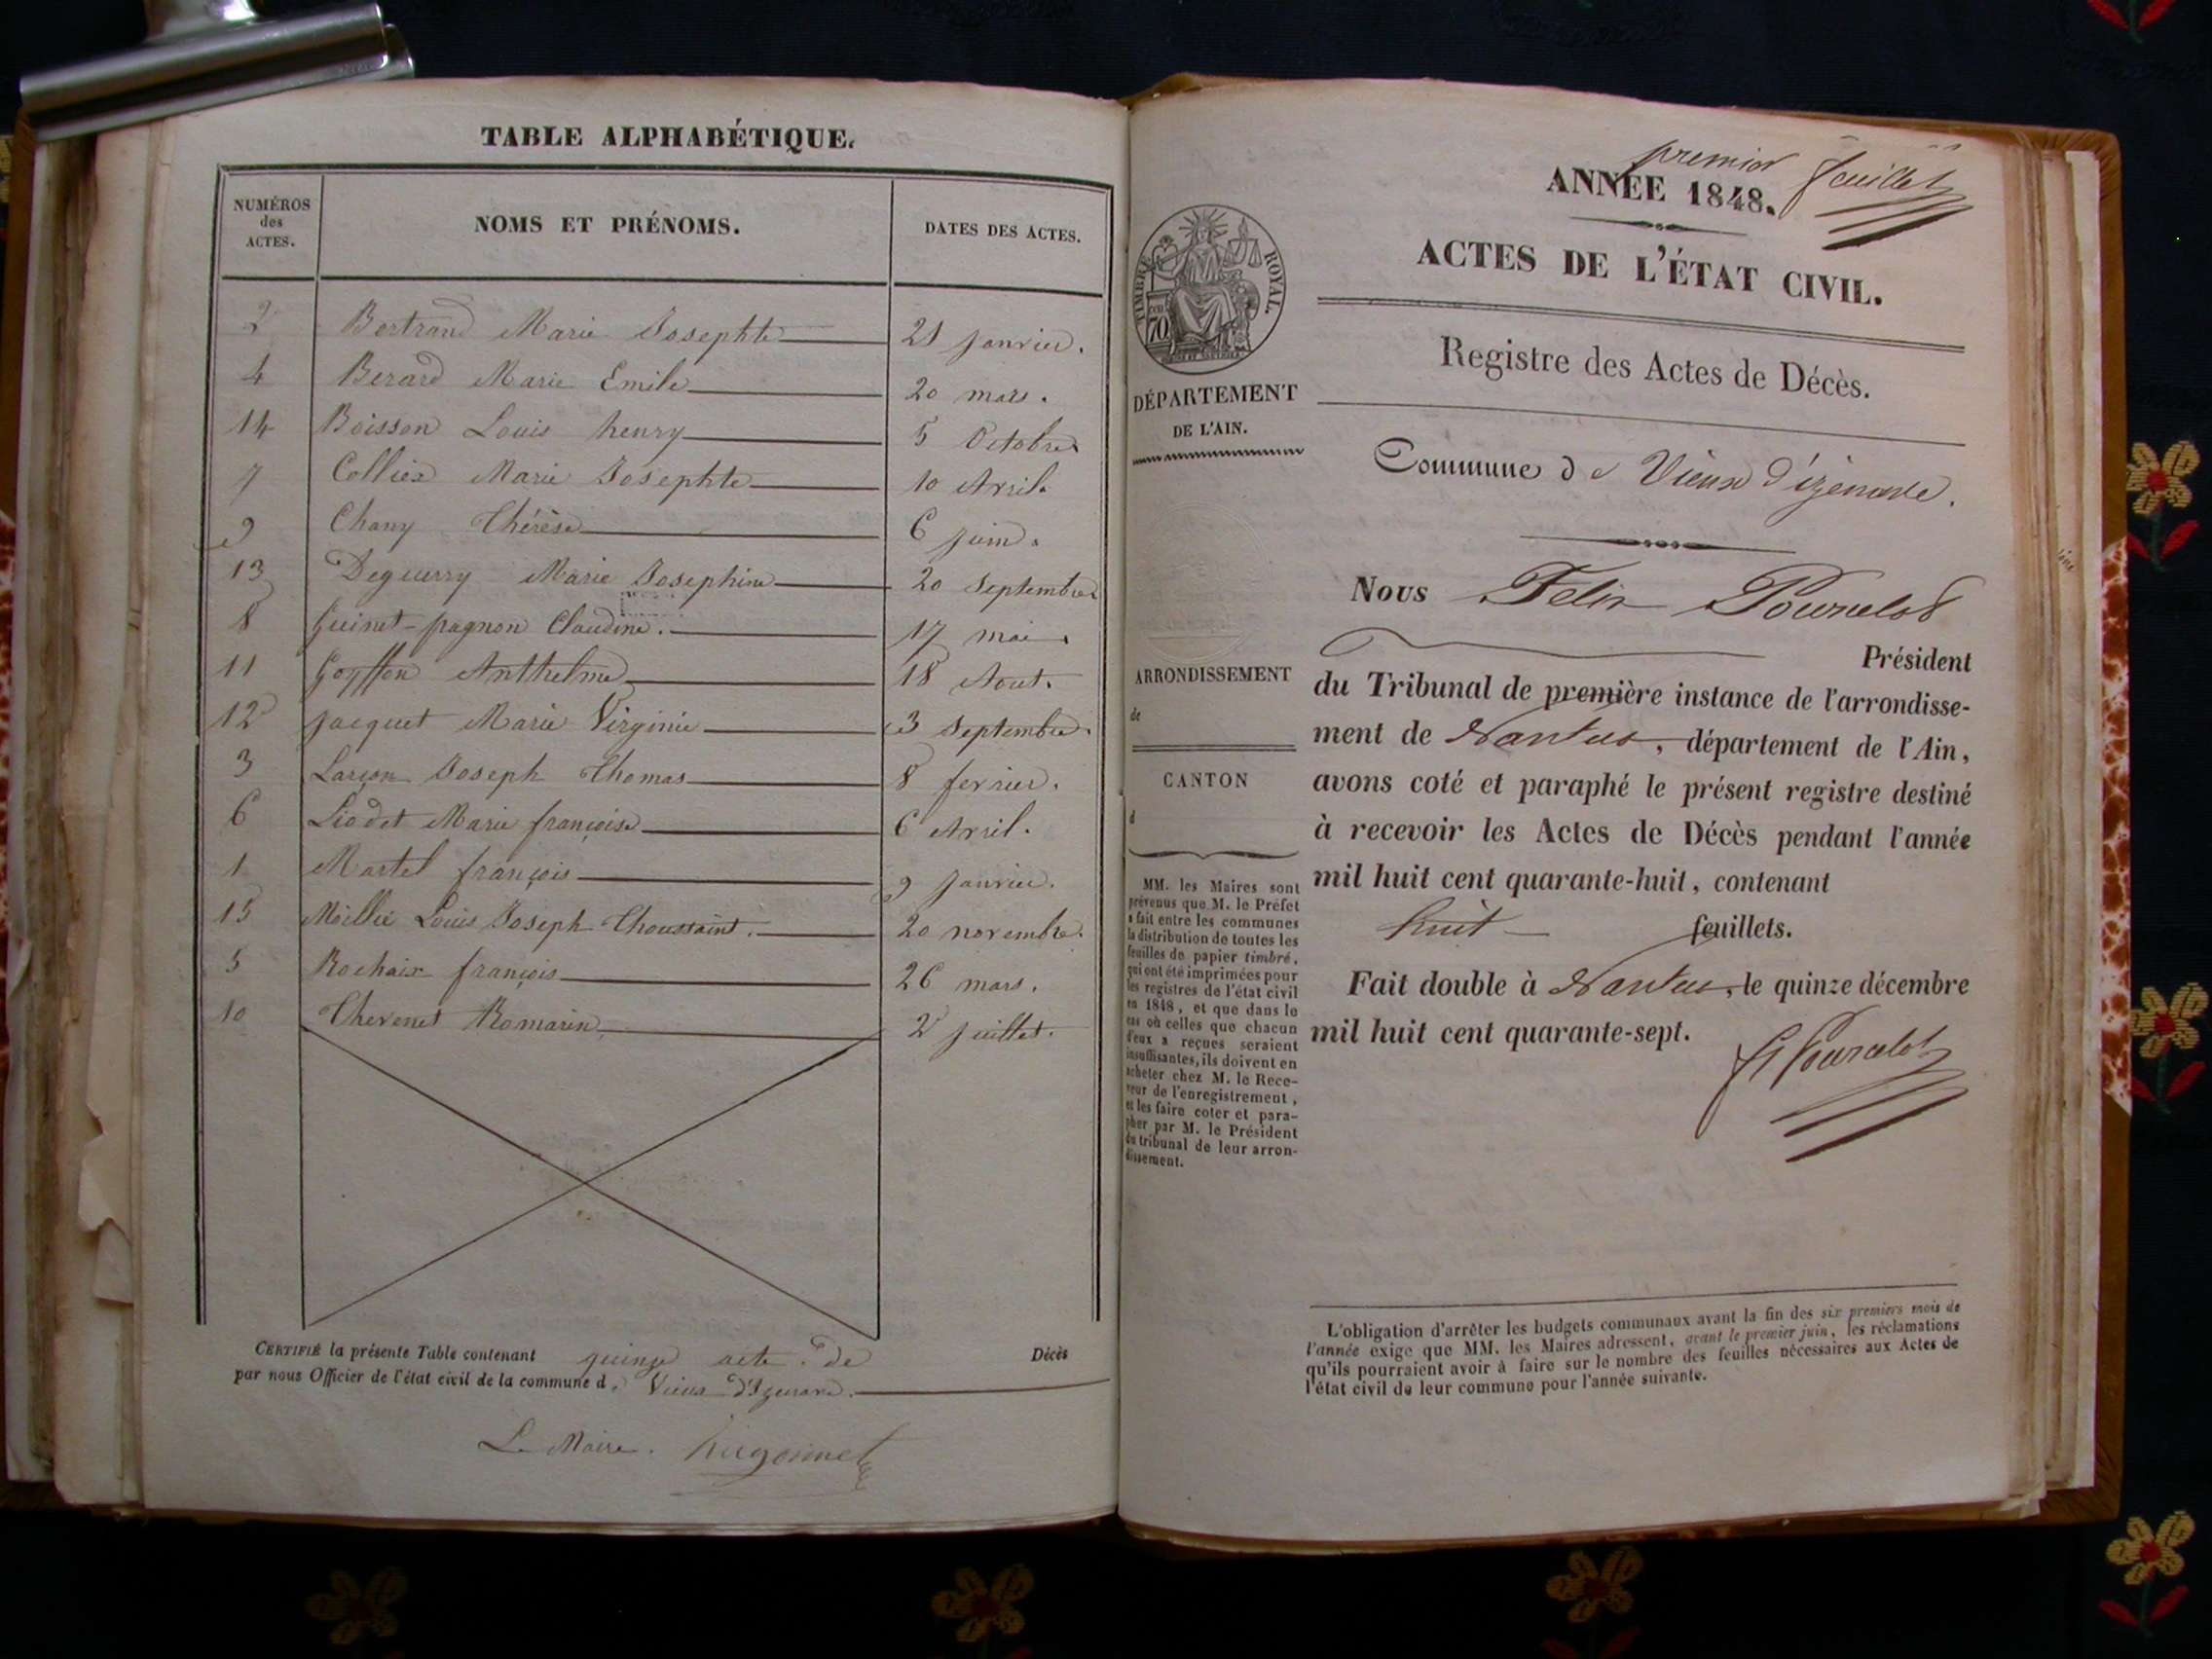 TABLE ALPHABÉTIQUE.
NUMÉROS des ACTES.
NOMS ET PRÉNOMS.
DATES DES ACTES.
2 Bertrand Marie Josephte 21 janvier.
4 Berard Marie Emile 20 mars.
14 Boisson Louis henry 5 Octobre
7 Collier Marie Josephte 10 Avril.
9 Chany Thérèse 6 juin.
13 Deguerry Marie Josephine 20 Septembre
8 Guinet-pagnon Claudine. 17 mai.
11 Goyffon Anthelme 18 Aout.
12 Jacquet Marie Virginie 3 Septembre.
3 Larçon Joseph Thomas 8 fevrier.
6 Liodet Marie françoise 6 Avril.
1 Martel françois 9 Janvier.
15 Moillie Louis Joseph Thoussaint. 20 novembre.
5 Rochaix françois 26 mars.
10 Thevenet Romarin 2 juillet.
CERTIFIÉ la présente Table contenant quinze acte de Décès
par nous Officier de l'état civil de la commune d. Vieux d'Izenave.
Le Maire. hugonnet
premier feuillet
ANNÉE 1848.
ACTES DE L'ÉTAT CIVIL.
Registre des Actes de Décès.
TIMBRE ROYAL.
70
DÉPARTEMENT
DE L'AIN.
ARRONDISSEMENT
de
CANTON
d
MM. les Maires sont
prévenus que M. le Préfet
a fait entre les communes
la distribution de toutes les
feuilles de papier timbré,
qui ont été imprimées pour
les registres de l'état civil
en 1848, et que dans le
cas où celles que chacun
d'eux a reçues seraient
insuffisantes, ils doivent en
acheter chez M. le Rece-
veur de l'enregistrement,
et les faire coter et para-
pher par M. le Président
du tribunal de leur arron-
dissement.
Commune de Vieux d'izenave.
Nous Felix Pourcelot
Président
du Tribunal de première instance de l'arrondisse-
ment de Nantua, département de l'Ain,
avons coté et paraphé le présent registre destiné
à recevoir les Actes de Décès pendant l'année
mil huit cent quarante-huit, contenant
huit feuillets.
Fait double à Nantua, le quinze décembre
mil huit cent quarante-sept.
f Pourcelot
L'obligation d'arrêter les budgets communaux avant la fin des six premiers mois de
l'année exige que MM. les Maires adressent, avant le premier juin, les réclamations
qu'ils pourraient avoir à faire sur le nombre des feuilles nécessaires aux Actes de
l'état civil de leur commune pour l'année suivante.